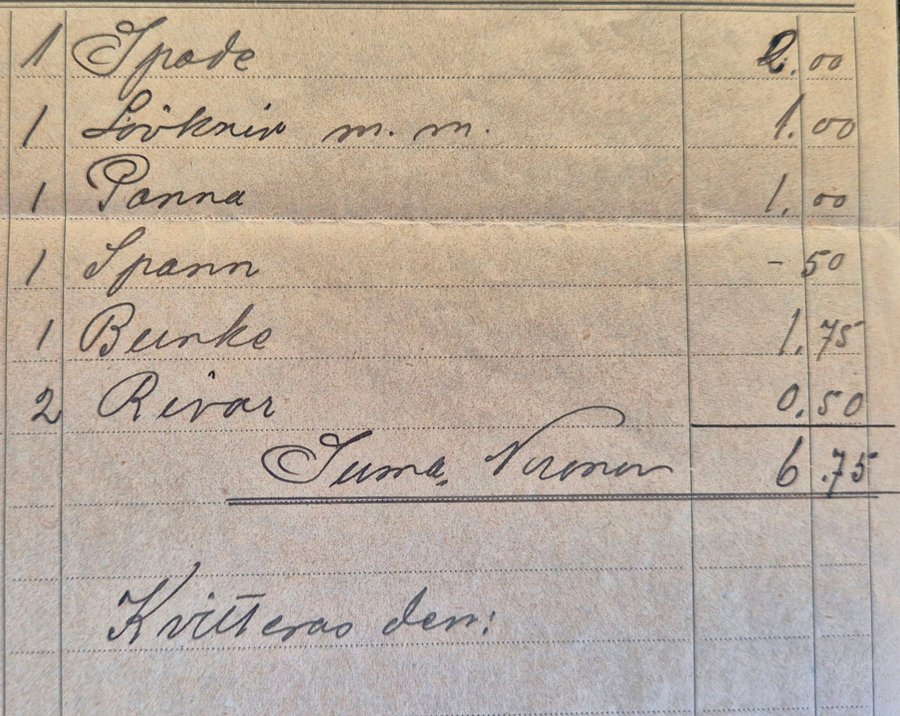 1 Spade 2.00
1 Lövkniv m. m. 1.00
1 Panna 1.00
1 Spann - 50
1 Bunke 1.75
2 Rivar 0.50
Suma, Kronor 6.75
Kvitteras den: